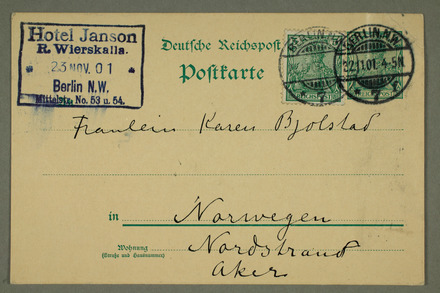 Hotel Janson
R. Wierskalla.
* 23 NOV. 01 *
Berlin N.W.
Mittelstr. No. 53 u. 54.
Deutsche Reichspost
Postkarte
BERLIN, N.W.
BERLIN, N.W.
22.11.01. 4-5N
* 7 *
REICHSPOST
Fraulein Karen Bjolstad
in Norwegen
Wohnung Nordstrand
(Straße und Hausnummer)
Aker